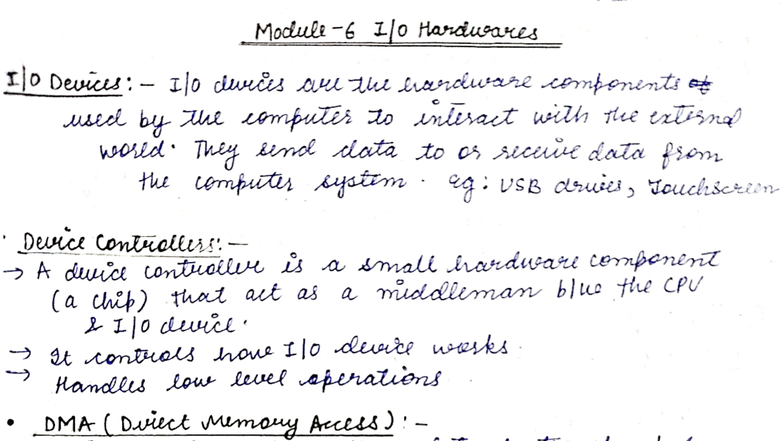 Module-6 I/O Hardwares
I/O Devices:- I/O devices are the hardware components
used by the computer to interact with the external
world. They send data to or receive data from
the computer system. eg: USB drives, Touchscreen
Device Controllers:-
→ A device controller is a small hardware component
(a chip) that act as a middleman b/w the CPU
& I/O device.
→ It controls how I/O device works.
→ Handles low level operations
• DMA (Direct Memory Access):-